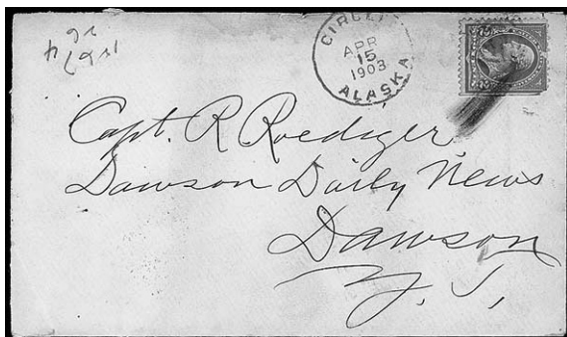 CIRCLE
APR
15
1903
ALASKA
Capt. R Roediger
Dawson Daily News
Dawson
Y. T.,